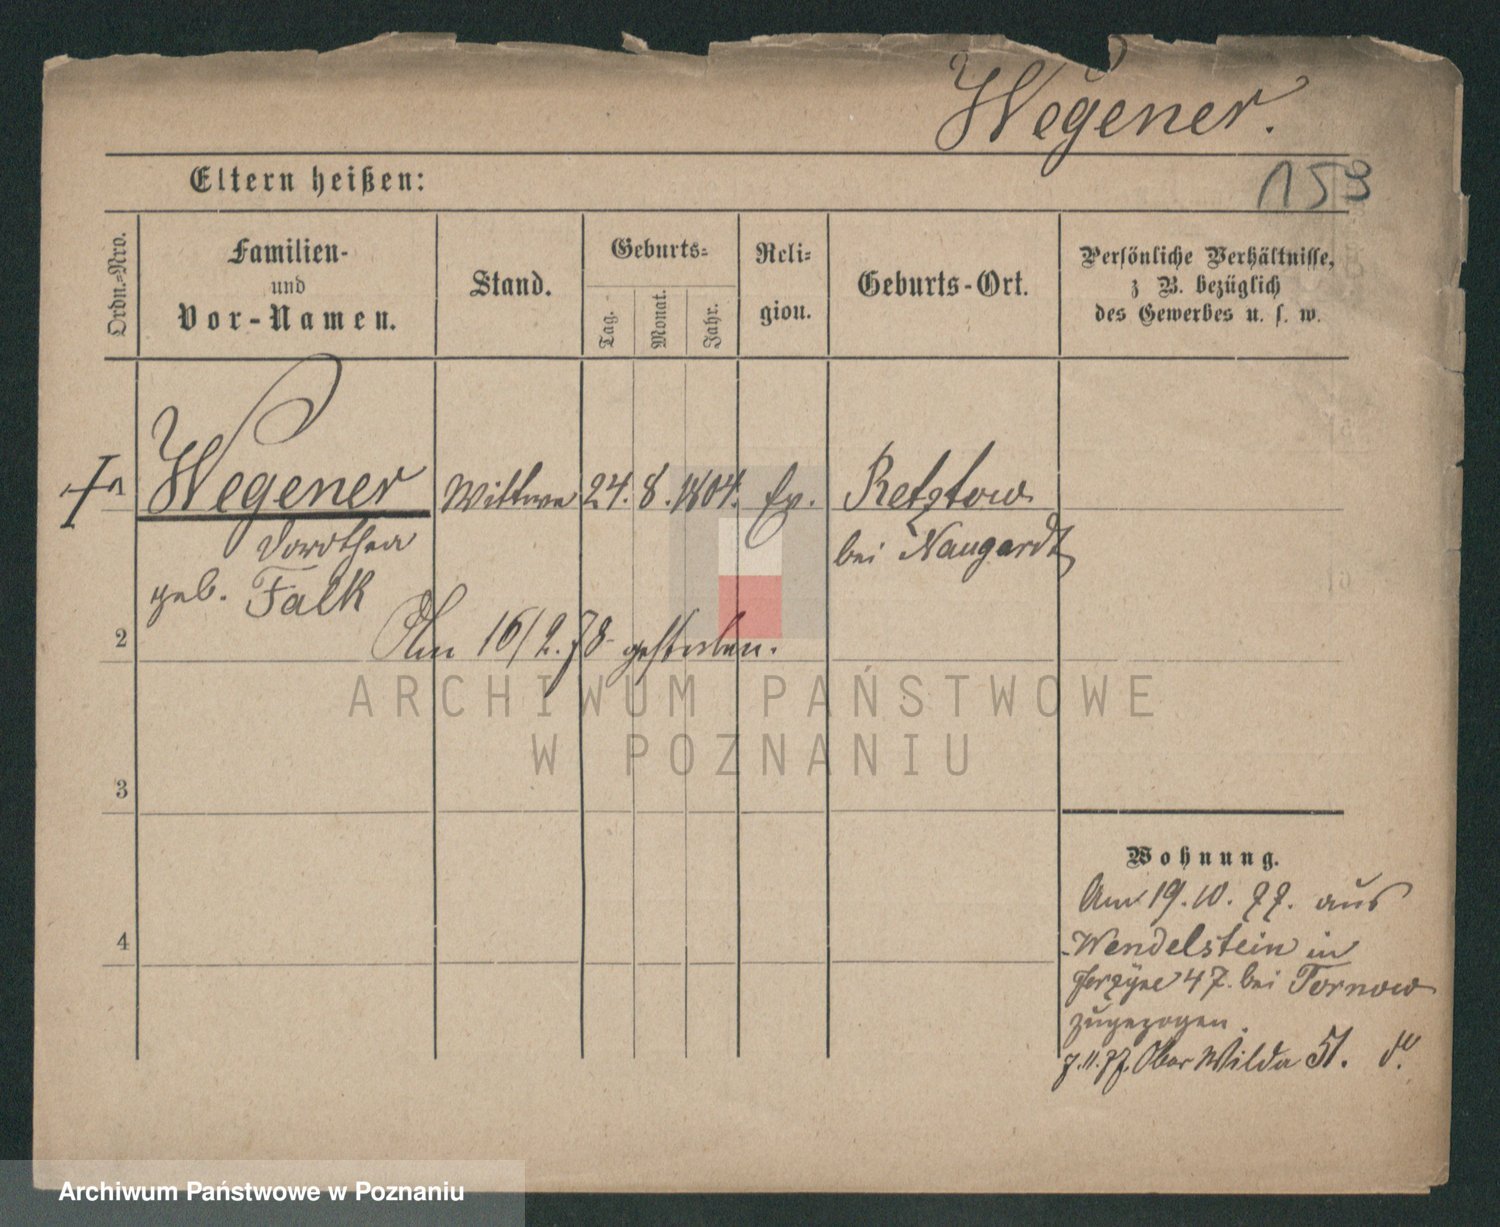 Wegener.
153
Eltern heißen:
Ordn.-Nro.
Familien-
und
Vor-Namen.
Stand.
Geburts-
Tag.
Monat.
Jahr.
Reli-
gion.
Geburts-Ort.
Persönliche Verhältnisse,
z B. bezüglich
des Gewerbes u. s. w.
Wegener Wittwe 24. 8. 1804. Ev. Retztow
Dorothea bei Naugardt
geb. Falk
2
Am 16/2.78 gestorben.
ARCHIWUM PAŃSTWOWE
W POZNANIU
3
Wohnung.
Am 19.10.77. aus
Wendelstein in
47. bei Tornow
zugezogen.
7.11.77. Ober Wilda 51.
4
Archiwum Państwowe w Poznaniu